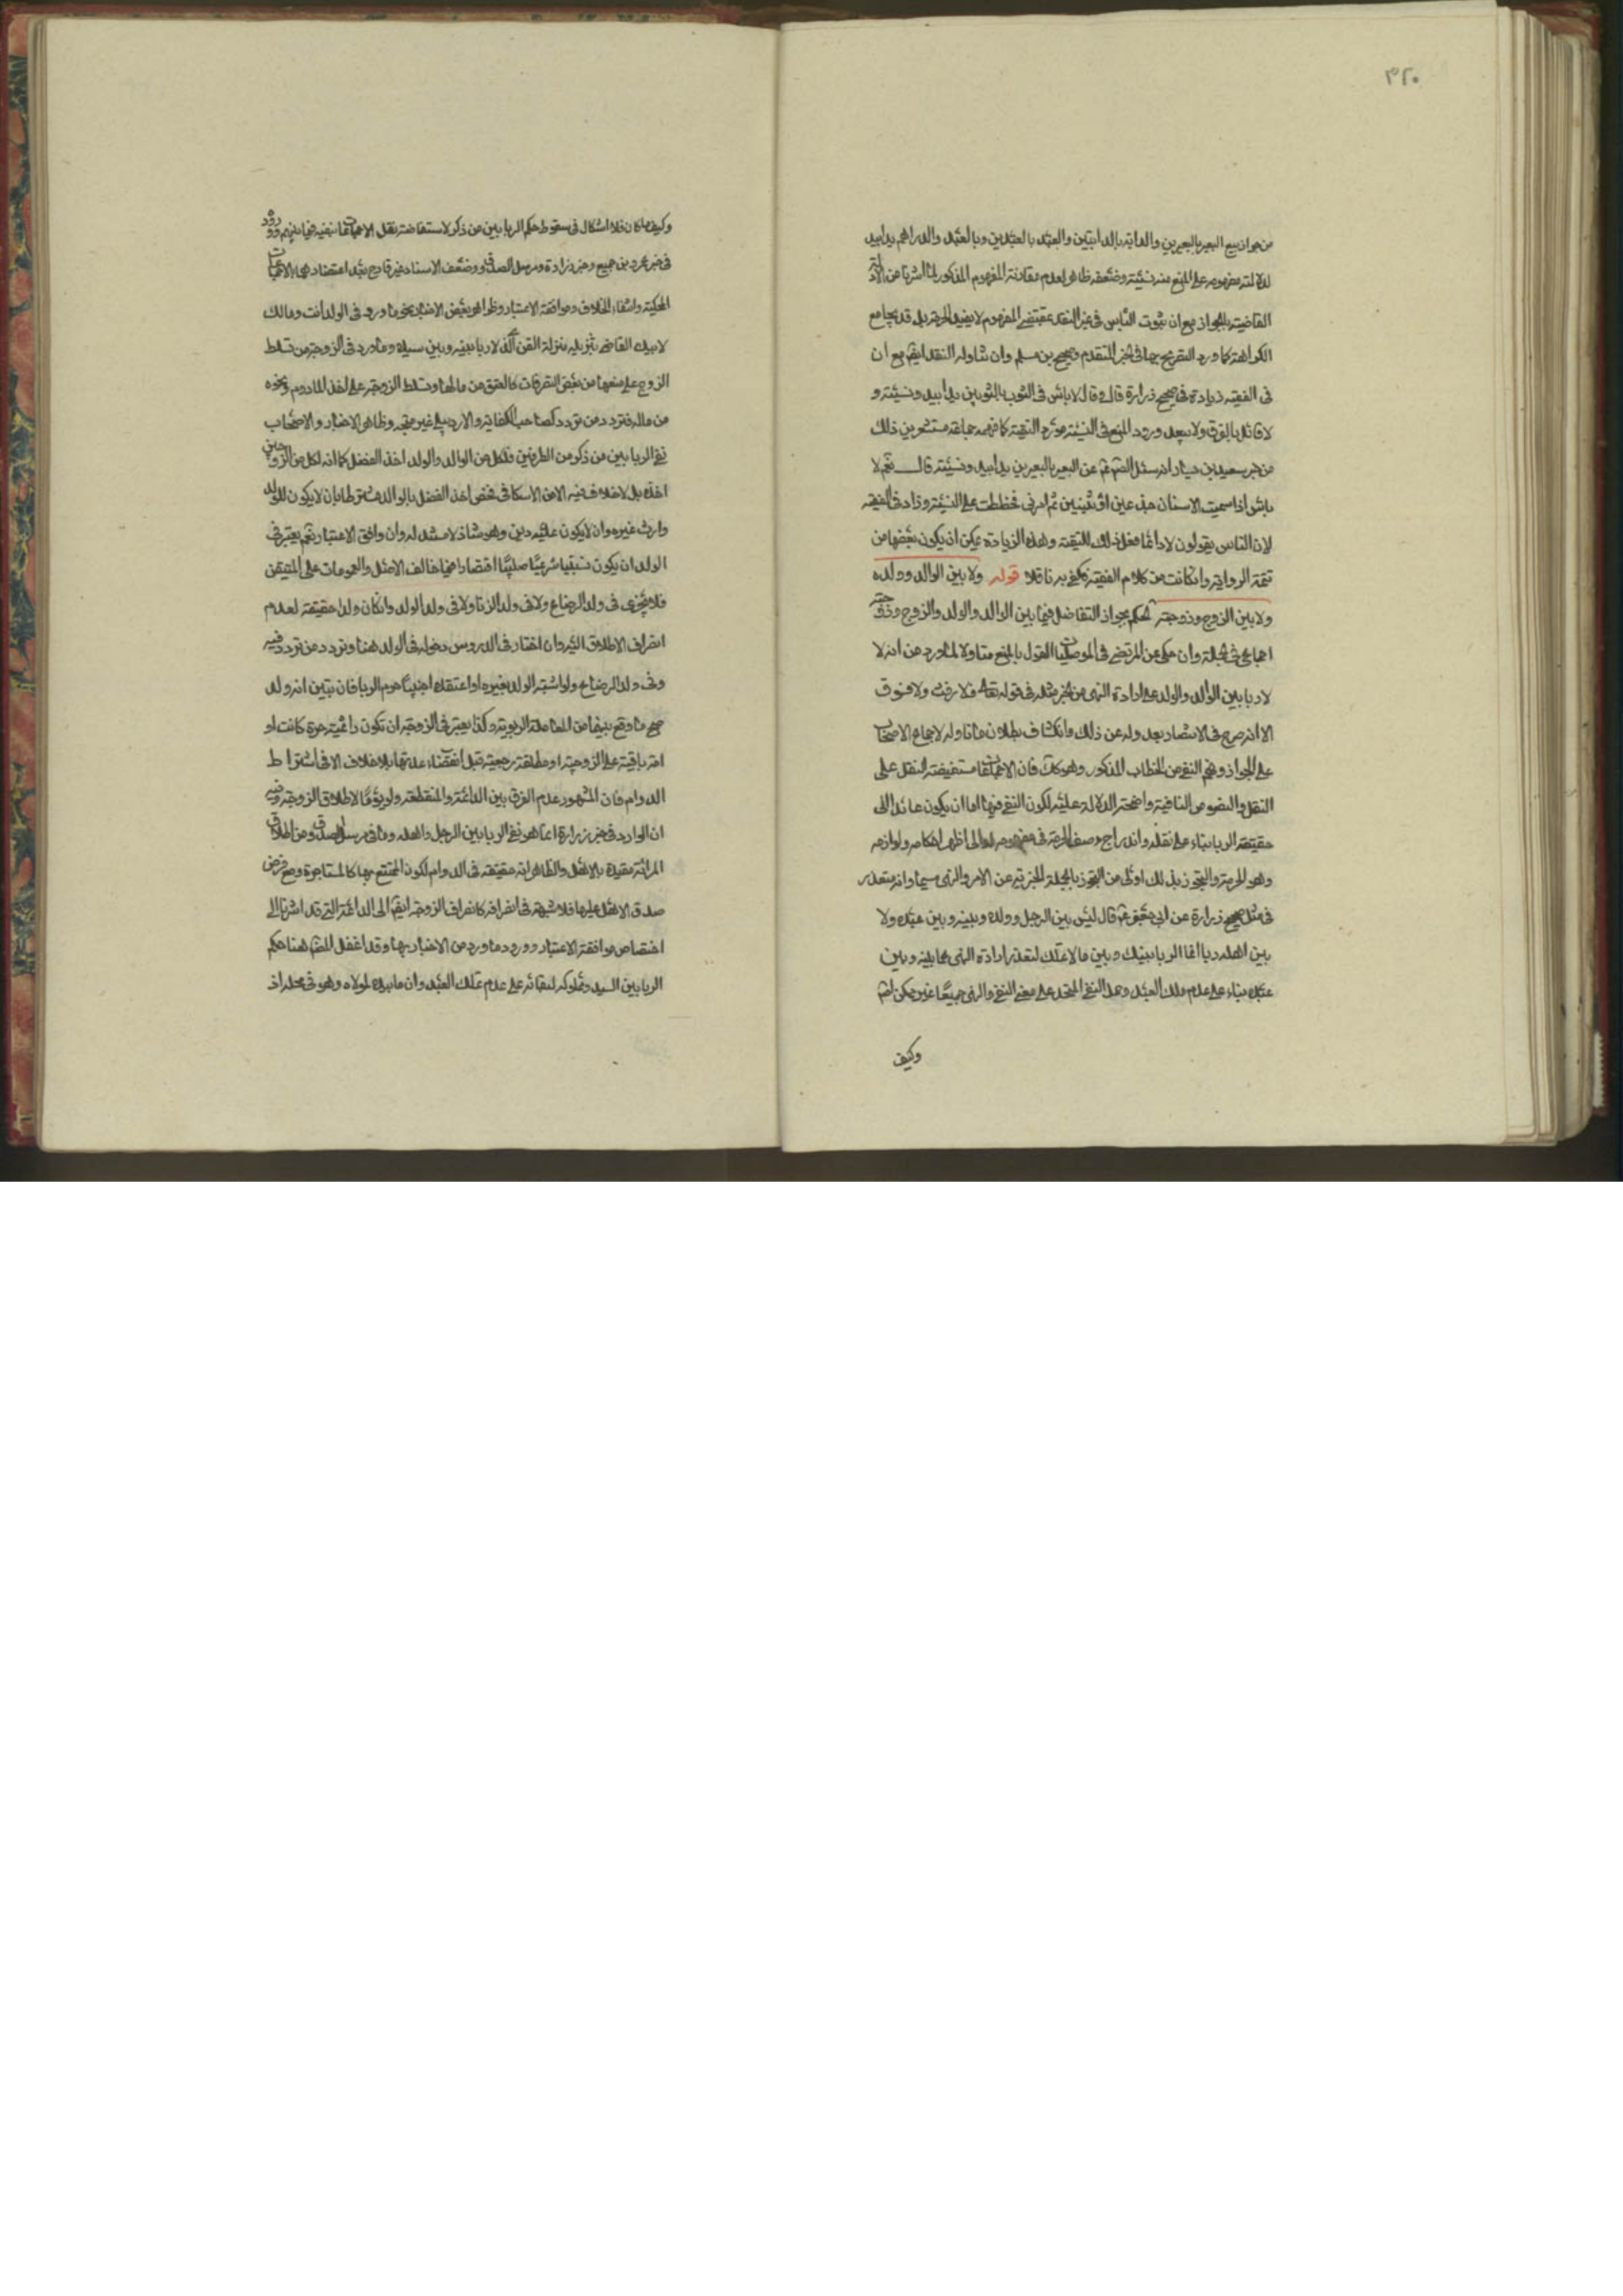 ٣٢٠
من جواز بيع البعير بالبعيرين والدابة بالدابتين والعبد بالعبدين وبالعبد والدراهم يدا بيد
لدلالته بمفهومه على المنع منه نسيئة وضعفه ظاهر لعدم مقاومة المفهوم المذكور لما اشرنا من الادلة
القاضية بالجواز مع ان ثبوت الباس في غير النقد بمقتضى المفهوم لا يفيد الحرمة بل قد يجامع
الكراهة كما ورد التصريح بها في الخبر المتقدم وصحيح بن مسلم وان تناوله النقد ايضا مع ان
في الفقيه زيادة في صحيح زرارة قال وقال لا باس في الثوب بالثوبين يدا بيد ونسيئة و
لا قائل بالفرق ولا يبعد ورود المنع في النسيئة مورد التقية كما فهمه جماعة مستشعرين ذلك
من خبر سعيد بن يسار انه سئل الصم عن البعير بالبعيرين يدا بيد ونسيئة قال نعم لا
باس اذا سميت الاسنان جذعين او ثنيين ثم امرني فخططت على النسيئة وزاد في الفقيه
لان الناس يقولون لا وانما فعل ذلك للتقية وهذه الزيادة يمكن ان يكون بعضها من
تتمة الرواية وان كانت من كلام الفقيه فكفى به ناقلا قوله ولا بين الوالد وولده
ولا بين الزوج وزوجته الحكم بجواز التفاضل فيما بين الوالد والولد والزوج وزوجته
اجماعي في الجملة وان حكي عن المرتضى في الموصليات القول بالمنع متاولا لما ورد من انه لا
لا ربا بين الوالد والولد على ارادة النهي من الخبر مثله في قوله تعالى فلا رفث ولا فسوق
الا انه رجع في الانتصار بعدوله عن ذلك وانكشاف بطلان ما تاوله لاجماع الاصحاب
على الجواز وفهم النفي من الخطاب المذكور وهو كذلك فان الاجماعات مستفيضة النقل على
النقل والنصوص النافية واضحة الدلالة عليه لكون النفي فيها اما ان يكون عائدا الى
حقيقة الربا بناء على نقله واندراج وصف الحرمة في مفهومه او الى اظهر احكامه ولوازمه
وهو الحرمة والتجوز بذلك اولى من التجوز بالجملة الخبرية عن الامر والنهي سيما وانه متعذر
في مثل صحيح زرارة عن ابي جعفر ع قال ليس بين الرجل وولده وبينه وبين عبده ولا
بين اهله ربا انما الربا بينك وبين ما لا تملك لتعذر ارادة النهي عما بينه وبين
عبده بناء على عدم ملك العبد وحمل النفي المتحد على معنى النفي والنهي جميعا غير ممكن ايضا
وكيف
وكيف ما كان فلا اشكال في سقوط حكم الربا بين من ذكر لاستفاضة نقل الاجماعات بنفيه فيما بينهم وورود
في خبر عمرو بن جميع وخبر زرارة ومرسل الصدوق وضعف الاسناد غير قادح بعد اعتضاد بالاجماعات
المحكية وانتفاء الخلاف وموافقة الاعتبار وظواهر بعض الاخبار نحو ما ورد في الولد انت ومالك
لابيك القاضي بتنزيله منزلة القن الذي لا ربا بينه وبين سيده وما ورد في الزوجة من تسلط
الزوج على منعها من بعض التصرفات كالعتق من مالها وتسلط الزوجة على اخذ المادوم ونحوه
من ماله فتردد من تردد كصاحب الكفاية والاردبيلي غير متجه وظاهر الاخبار والاصحاب
نفي الربا بين من ذكر من الطرفين فلكل من الوالد والولد اخذ الفضل كما انه لكل من الزوجين
اخذه بل لا خلاف فيه الا من الاسكافي فخص اخذ الفضل بالوالد مشترطا بان لا يكون للولد
وارث غيره وان لا يكون عليه دين وهو شاذ لا مستند له وان وافق الاعتبار نعم يعتبر في
الولد ان يكون نسبيا شرعيا صلبيا اقتصارا فيما خالف الاصل والعمومات على المتيقن
فلا يجري في ولد الرضاع ولا في ولد الزنا ولا في ولد الولد وان كان ولدا حقيقة لعدم
انصراف الاطلاق اليه وان اختار في الدروس دخوله في الولد هنا وتردد من تردد فيه
وفي ولد الرضاع ولو اشتبه الولد بغيره او اعتقده اجنبيا حرم الربا فان تبين انه ولد
صح ما وقع بينهما من المعاملة الربوية وكذا يعتبر في الزوجة ان تكون دائمية حرة كانت او
امة باقية على الزوجية او مطلقة رجعية قبل انقضاء عدتها بلا خلاف الا في اشتراط
الدوام فان المشهور عدم الفرق بين الدائمة والمنقطعة ولو يوما لاطلاق الزوجة وفيه
ان الوارد في خبر زرارة انما هو نفي الربا بين الرجل واهله وما في مرسل الصدوق من اطلاق
المراة مقيدة بالاهل والظاهر انه حقيقة في الدوام لكون المتمتع بها كالمستاجرة ومع فرض
صدق الاهل عليها فلا شبهة في انصرافه كانصراف الزوجة ايضا الى الدائمة التي قد اشرنا الى
اختصاص موافقة الاعتبار وورود ما ورد من الاخبار بها وقد اغفل المص هنا حكم
الربا بين السيد ومملوكه لبنائه على عدم تملك العبد وان ما بيده لمولاه وهو في محله اذ